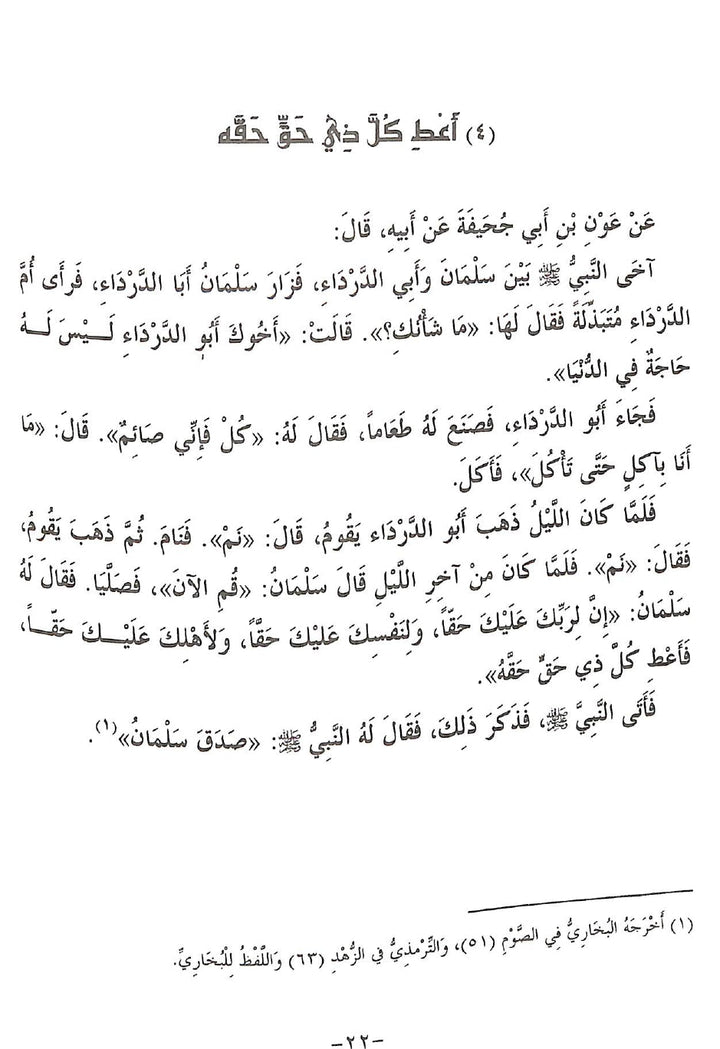 (٤) أَعْطِ كُلَّ ذِي حَقٍّ حَقَّه
عَنْ عَوْنِ بْنِ أَبِي جُحَيفَةَ عَنْ أَبِيهِ، قَالَ:
آخَى النَّبِيُّ ﷺ بَيْنَ سَلْمَانَ وَأَبِي الدَّرْدَاءِ، فَزَارَ سَلْمَانُ أَبَا الدَّرْدَاءِ، فَرأَى أُمَّ
الدَّرْدَاءِ مُتَبَذِّلَةً فَقَالَ لَهَا: «مَا شَأْنُكِ؟». قَالَتْ: «أَخُوكَ أَبُو الدَّرْدَاءِ لَـــيْسَ لَــهُ
حَاجَةٌ فِي الدُّنْيَا».
فَجَاءَ أَبُو الدَّرْدَاءِ، فَصَنَعَ لَهُ طَعَاماً، فَقَالَ لَهُ: «كُلْ فَإِنِّي صَائِمٌ». قَالَ: «مَا
أَنَا بِآكِلٍ حَتَّى تَأْكُلَ»، فَأَكَلَ.
فَلَمَّا كَانَ اللَّيْلُ ذَهَبَ أَبُو الدَّرْدَاء يَقُومُ، قَالَ: «نَمْ». فَنَامَ. ثُمَّ ذَهَبَ يَقُومُ،
فَقَالَ: «نَمْ». فَلَمَّا كَانَ مِنْ آخِرِ اللَّيْلِ قَالَ سَلْمَانُ: «قُمِ الآنَ»، فَصَلَّيَا. فَقَالَ لَهُ
سَلْمَانُ: «إِنَّ لِرَبِّكَ عَلَيْكَ حَقّاً، وَلِنَفْسِكَ عَلَيْكَ حَقَّاً، وَلأَهْلِكَ عَلَيْــــكَ حَقّــاً،
فَأَعْطِ كُلَّ ذِي حَقٍّ حَقَّهُ».
فَأَتَى النَّبِيَّ ﷺ، فَذَكَرَ ذَلِكَ، فَقَالَ لَهُ النَّبِيُّ ﷺ: «صَدَقَ سَلْمَانُ»(١).
(١) أَخْرَجَهُ البُخَارِيُّ فِي الصَّوْمِ (٥١)، وَالتِّرْمذِيُّ فِي الزُّهْدِ (٦٣) وَاللَّفْظُ لِلْبُخَارِيِّ.
-٢٢-